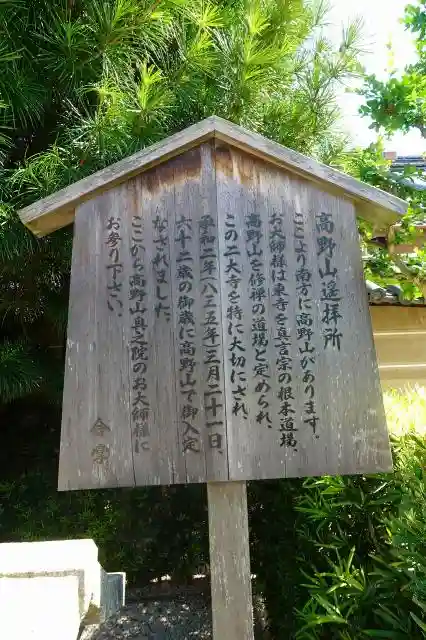 高野山遥拝所
ここより南方に高野山があります。
お大師様は東寺を真言宗の根本道場、
高野山を修禅の道場と定められ、
この二大寺を特に大切にされ、
承和二年一八三五年三月二十一日、
六十二歳の御歳に高野山で御入定
なされました。
ここから高野山奥之院のお大師様に
お参り下さい。
合掌